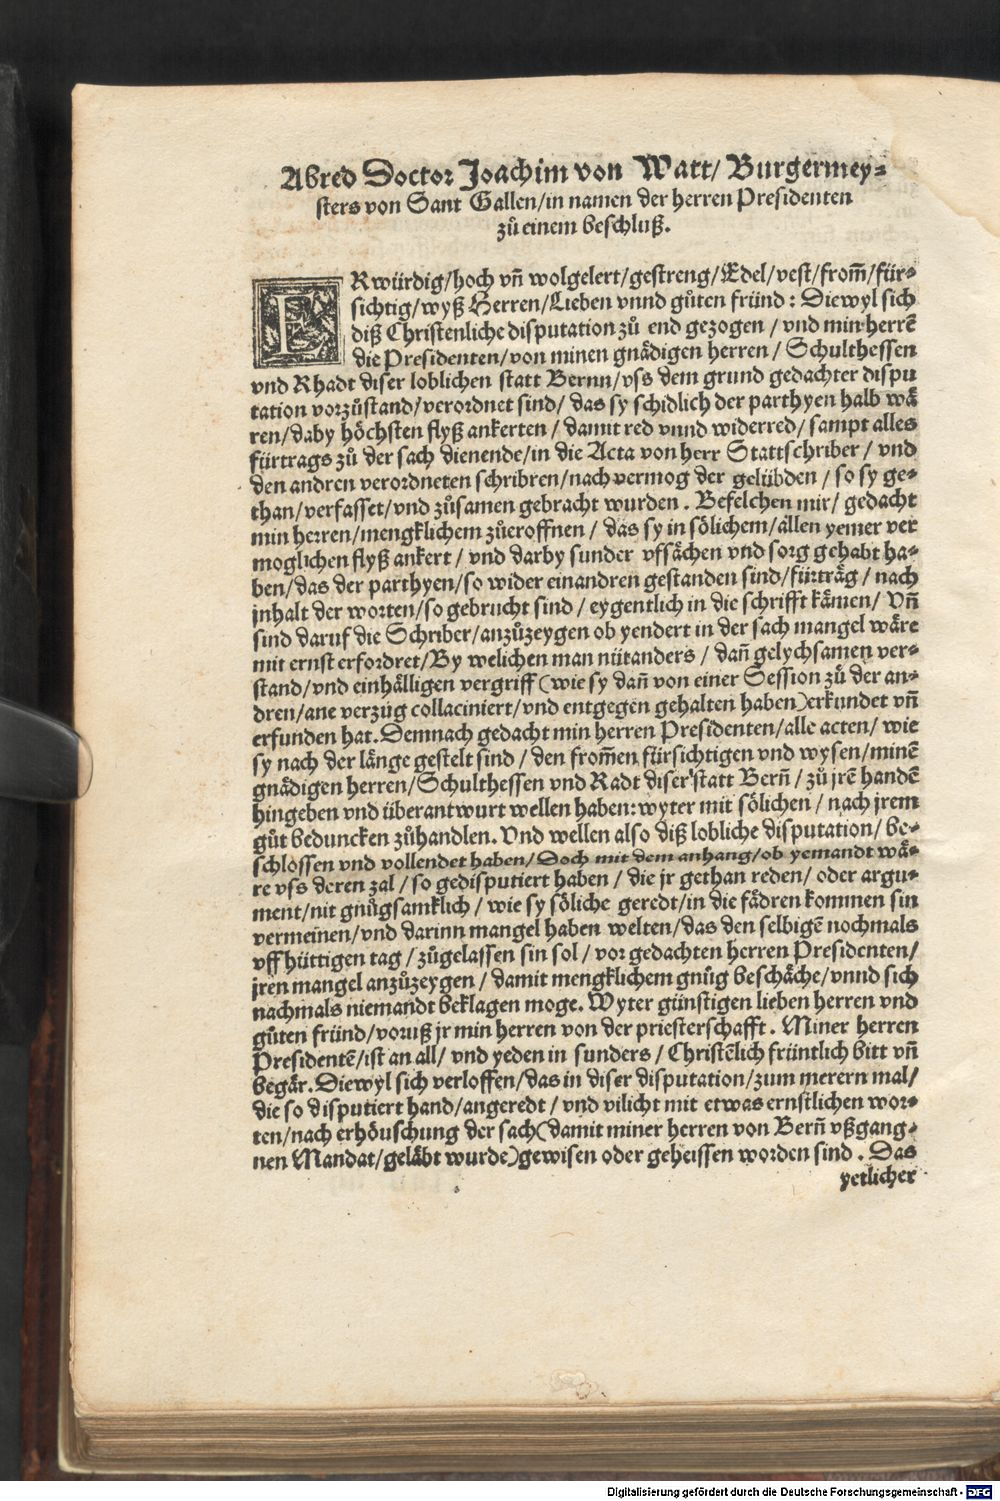 Abred Doctor Joachim von Watt/ Burgermey-
sters von Sant Gallen/in namen der herren Presidenten
zů einem beschluß.
ERwürdig/hoch vñ wolgelert/gestreng/Edel/vest/from̃/für-
sichtig/wyß Herren/Lieben vnnd gůten fründ: Diewyl sich
diß Christenliche disputation zů end gezogen / vnd min herrẽ
die Presidenten/von minen gnådigen herren / Schulthessen
vnd Rhadt diser loblichen statt Bernn/vss dem grund gedachter dispu
tation vorzůstand/verordnet sind/ das sy schidlich der parthyen halb wå
ren/daby höchsten flyß ankerten / damit red vnnd widerred/ sampt alles
fürtrags zů der sach dienende/in die Acta von herr Stattschriber / vnd
den andren verordneten schribren/nach vermog der gelübden / so sy ge-
than/verfasset/vnd zůsamen gebracht wurden . Befelchen mir/ gedacht
min herren/mengklichem zůeroffnen / das sy in sölichem/allen yemer ver
moglichen flyß ankert / vnd darby sunder vffsåchen vnd sorg gehabt ha-
ben/das der parthyen/so wider einandren gestanden sind/fürtråg / nach
jnhalt der worten/so gebrucht sind / eygentlich in die schrifft kåmen/ Vñ
sind daruf die Schriber/anzůzeygen ob yendert in der sach mangel wåre
mit ernst erfordret/By welichen man nütanders / dañ gelychsamen ver-
stand/vnd einhålligen vergriff (wie sy dañ von einer Session zů der an-
dren/ane verzug collaciniert/vnd entgegen gehalten haben)erkundet vñ
erfunden hat. Demnach gedacht min herren Presidenten/alle acten/ wie
sy nach der långe gestelt sind / den from̃en fürsichtigen vnd wysen/minẽ
gnådigen herren/Schulthessen vnd Radt diser statt Berñ / zů jrẽ handẽ
hingeben vnd überantwurt wellen haben: wyter mit sölichen / nach jrem
gůt beduncken zůhandlen. Vnd wellen also diß lobliche disputation/ be-
schlossen vnd vollendet haben/ Doch mit dem anhang/ob yemandt wå-
re vss deren zal / so gedisputiert haben / die jr gethan reden/ oder argu-
ment/nit gnůgsamklich / wie sy söliche geredt/in die fådren kommen sin
vermeinen/vnd darinn mangel haben welten/das den selbigẽ nochmals
vff hüttigen tag / zůgelassen sin sol / vor gedachten herren Presidenten/
jren mangel anzůzeygen / damit mengklichem gnůg beschåche/vnnd sich
nachmals niemandt beklagen moge. Wyter günstigen lieben herren vnd
gůten fründ/voruß jr min herren von der priesterschafft . Miner herren
Presidentẽ/ist an all/ vnd yeden in sunders / Christẽlich früntlich bitt vñ
begår. Diewyl sich verloffen/das in diser disputation/zum merern mal/
die so disputiert hand/angeredt / vnd vilicht mit etwas ernstlichen wor-
ten/nach erhöuschung der sach(damit miner herren von Berñ vßgang-
nen Mandat/gelåbt wurde)gewisen oder geheissen worden sind . Das
yetlicher
Digitalisierung gefördert durch die Deutsche Forschungsgemeinschaft - DFG